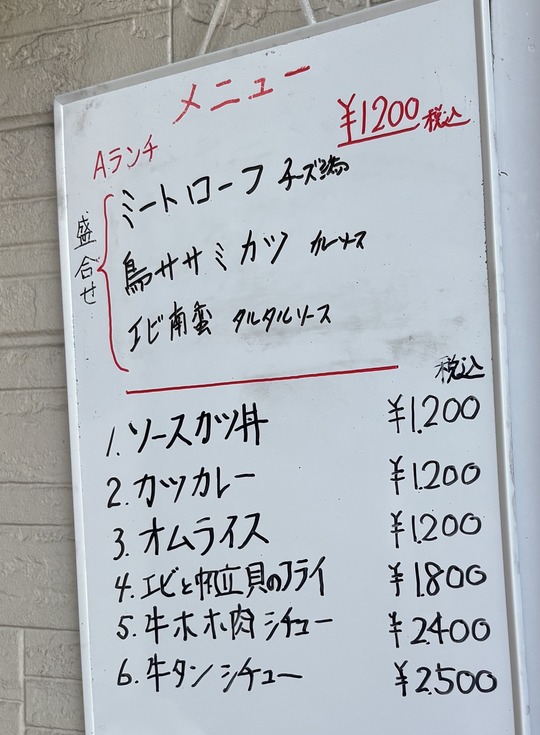 メニュー
¥1200 税込
Aランチ
盛合せ
ミートローフ チーズ
鳥ササミカツ カレーソース
エビ南蛮 タルタルソース
税込
1. ソースカツ丼 ¥1.200
2. カツカレー ¥1.200
3. オムライス ¥1.200
4. エビと帆立貝のフライ ¥1.800
5. 牛ホホ肉シチュー ¥2.400
6. 牛タンシチュー ¥2.500